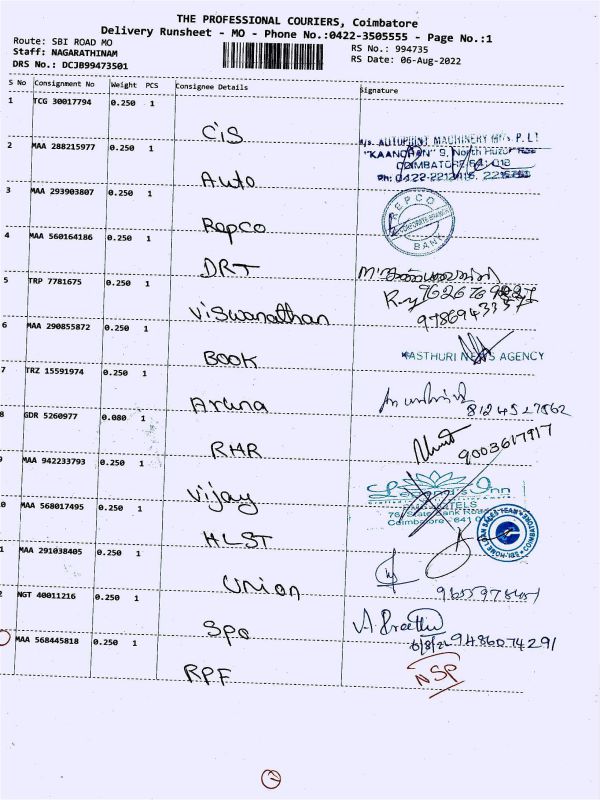 THE PROFESSIONAL COURIERS, Coimbatore
Delivery Runsheet - MO - Phone No.:0422-3505555 - Page No.:1
Route: SBI ROAD MO
RS No.: 994735
Staff: NAGARATHINAM
RS Date: 06-Aug-2022
DRS No.: DCJB99473501
S No Consignment No Weight PCS Consignee Details Signature
1 TCG 30017794 0.250 1
CiS
M/s. AUTOPRINT MACHINERY P. LT
2 MAA 288215977 0.250 1
"KAANCHAN" 9, North Huzur
COIMBATORE
Auto
3 MAA 293903807 0.250 1
REPCO
BANK
Repco
4 MAA 560164186 0.250 1
DRT
5 TRP 7781675 0.250 1
Viswanathan
6 MAA 290855872 0.250 1
BOOK
KASTHURI NEWS AGENCY
7 TRZ 15591974 0.250 1
Aruna
8124527862
8 GDR 5260977 0.080 1
RHR
9003617917
9 MAA 942233793 0.250 1
Vijay
Inn
HOTELS
76, State Bank Road
Coimbatore - 641 0
0 MAA 568017495 0.250 1
HLST
HOME LOAN SALES TEAM
SBI
COIMBATORE
1 MAA 291038405 0.250 1
Union
2 NGT 40011216 0.250 1
Spo
6/8/22 9486074291
MAA 568445818 0.250 1
RPF
NSP